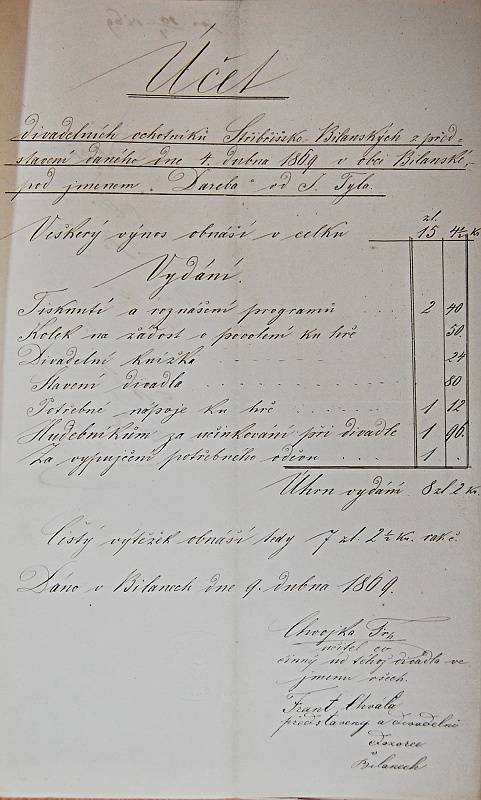 Účet
divadelních ochotníků Stříbřisko-Bilanských z před-
stavení daného dne 4. dubna 1869 v obci Bilanské,
pod jmenem „Dareba" od J. Tyla.
zl.
Veškerý výnos obnáší v celku 15 4½ Kr
Vydání.
Tisknutí a roznášení programů . . . 2 40
Kolek na žádost o povolení ku hře 50.
Divadelní knížka 24
Stavení divadla 80
Potřebné nápoje ku hře 1 12
Hudebníkům za učinkování při divadle 1 96.
Za vypujčení potřebného oděvu . . . 1 .
Úhrn vydání 8 zl 2 Kr.
Čistý výtěžek obnáší tedy 7 zl. 2½ Kr. rak č.
Dáno v Bilanech dne 9. dubna 1869.
Chvojka Fr.
učitel co
činný úd téhož divadla ve
jmenu všech.
Frant. Chvála
představený a divadelní
dozorce
v
Bilanech